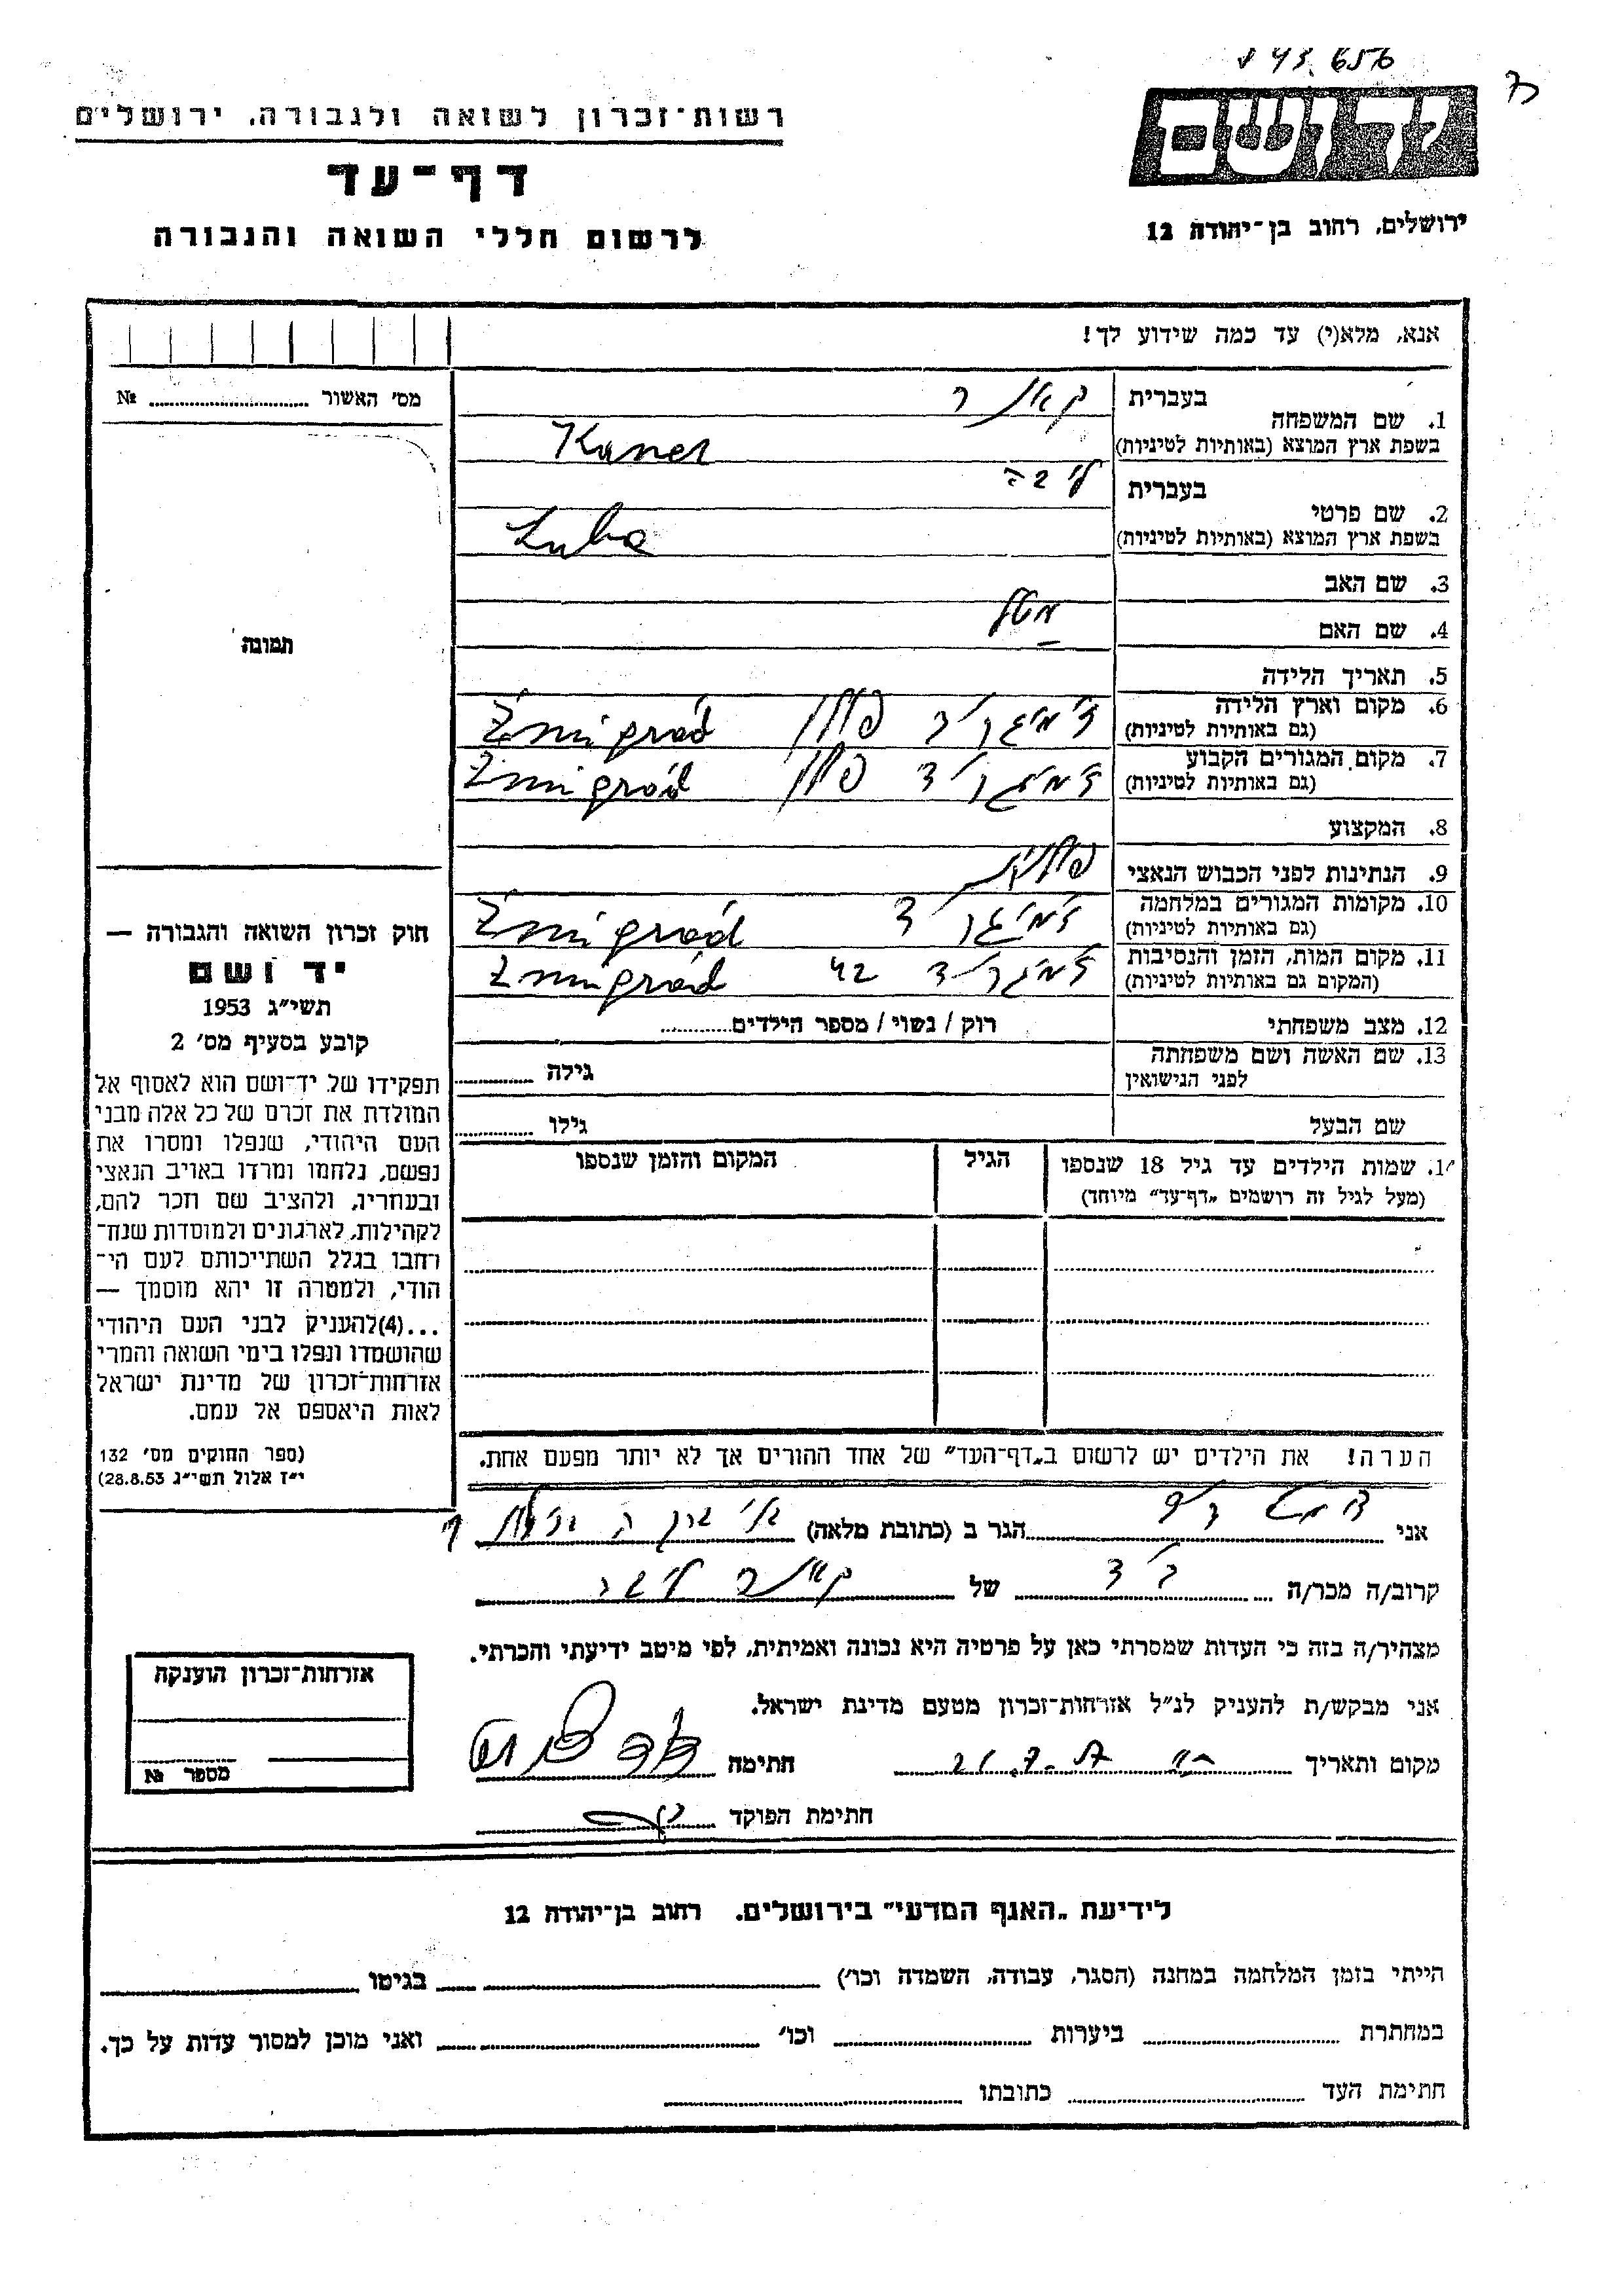 43.656
רשות-זכרון לשואה ולגבורה, ירושלים
יד ושם
דף-עד
ירושלים, רחוב בן-יהודה 12
לרשום חללי השואה והגבורה
אנא, מלא(י) עד כמה שידוע לך!
מס' האשור № 
1. שם המשפחה
בעברית קאנר
בשפת ארץ המוצא (באותיות לטיניות) Kaner
2. שם פרטי
בעברית ליבה
בשפת ארץ המוצא (באותיות לטיניות) Luba
3. שם האב
4. שם האם
5. תאריך הלידה
6. מקום וארץ הלידה
(גם באותיות לטיניות) פולין Żmigród
7. מקום המגורים הקבוע
(גם באותיות לטיניות) פולין Żmigród
8. המקצוע
9. הנתינות לפני הכבוש הנאצי פולנית
10. מקומות המגורים במלחמה
(גם באותיות לטיניות) Żmigród
11. מקום המות, הזמן והנסיבות
(המקום גם באותיות לטיניות) 42 Żmigród
12. מצב משפחתי רוק / נשוי / מספר הילדים
13. שם האשה ושם משפחתה
לפני הנישואין גילה
שם הבעל גילו
14. שמות הילדים עד גיל 18 שנספו
(מעל לגיל זה רושמים „דף-עד" מיוחד)
הגיל
המקום והזמן שנספו
הערה! את הילדים יש לרשום ב„דף-העד" של אחד ההורים אך לא יותר מפעם אחת.
תמונה
חוק זכרון השואה והגבורה —
יד ושם
תשי"ג 1953
קובע בסעיף מס' 2
תפקידו של יד-ושם הוא לאסוף אל
המולדת את זכרם של כל אלה מבני
העם היהודי, שנפלו ומסרו את
נפשם, נלחמו ומרדו באויב הנאצי
ובעוזריו, ולהציב שם וזכר להם,
לקהילות, לארגונים ולמוסדות שנח-
רבו בגלל השתייכותם לעם הי-
הודי, ולמטרה זו יהא מוסמך —
...(4)להעניק לבני העם היהודי
שהושמדו ונפלו בימי השואה והמרי
אזרחות-זכרון של מדינת ישראל
לאות היאספם אל עמם.
(ספר החוקים מס' 132
י"ז אלול תשי"ג 28.8.53)
אני הגר ב (כתובת מלאה)
קרוב/ה מכר/ה של קאנר ליבה
מצהיר/ה בזה כי העדות שמסרתי כאן על פרטיה היא נכונה ואמיתית, לפי מיטב ידיעתי והכרתי.
אני מבקש/ת להעניק לנ"ל אזרחות-זכרון מטעם מדינת ישראל.
מקום ותאריך חתימה
חתימת הפוקד
אזרחות-זכרון הוענקה
מספר №
לידיעת „האגף המדעי" בירושלים, רחוב בן-יהודה 12
הייתי בזמן המלחמה במחנה (הסגר, עבודה, השמדה וכו') בגיטו
במחתרת ביערות וכו' ואני מוכן למסור עדות על כך.
חתימת העד כתובתו